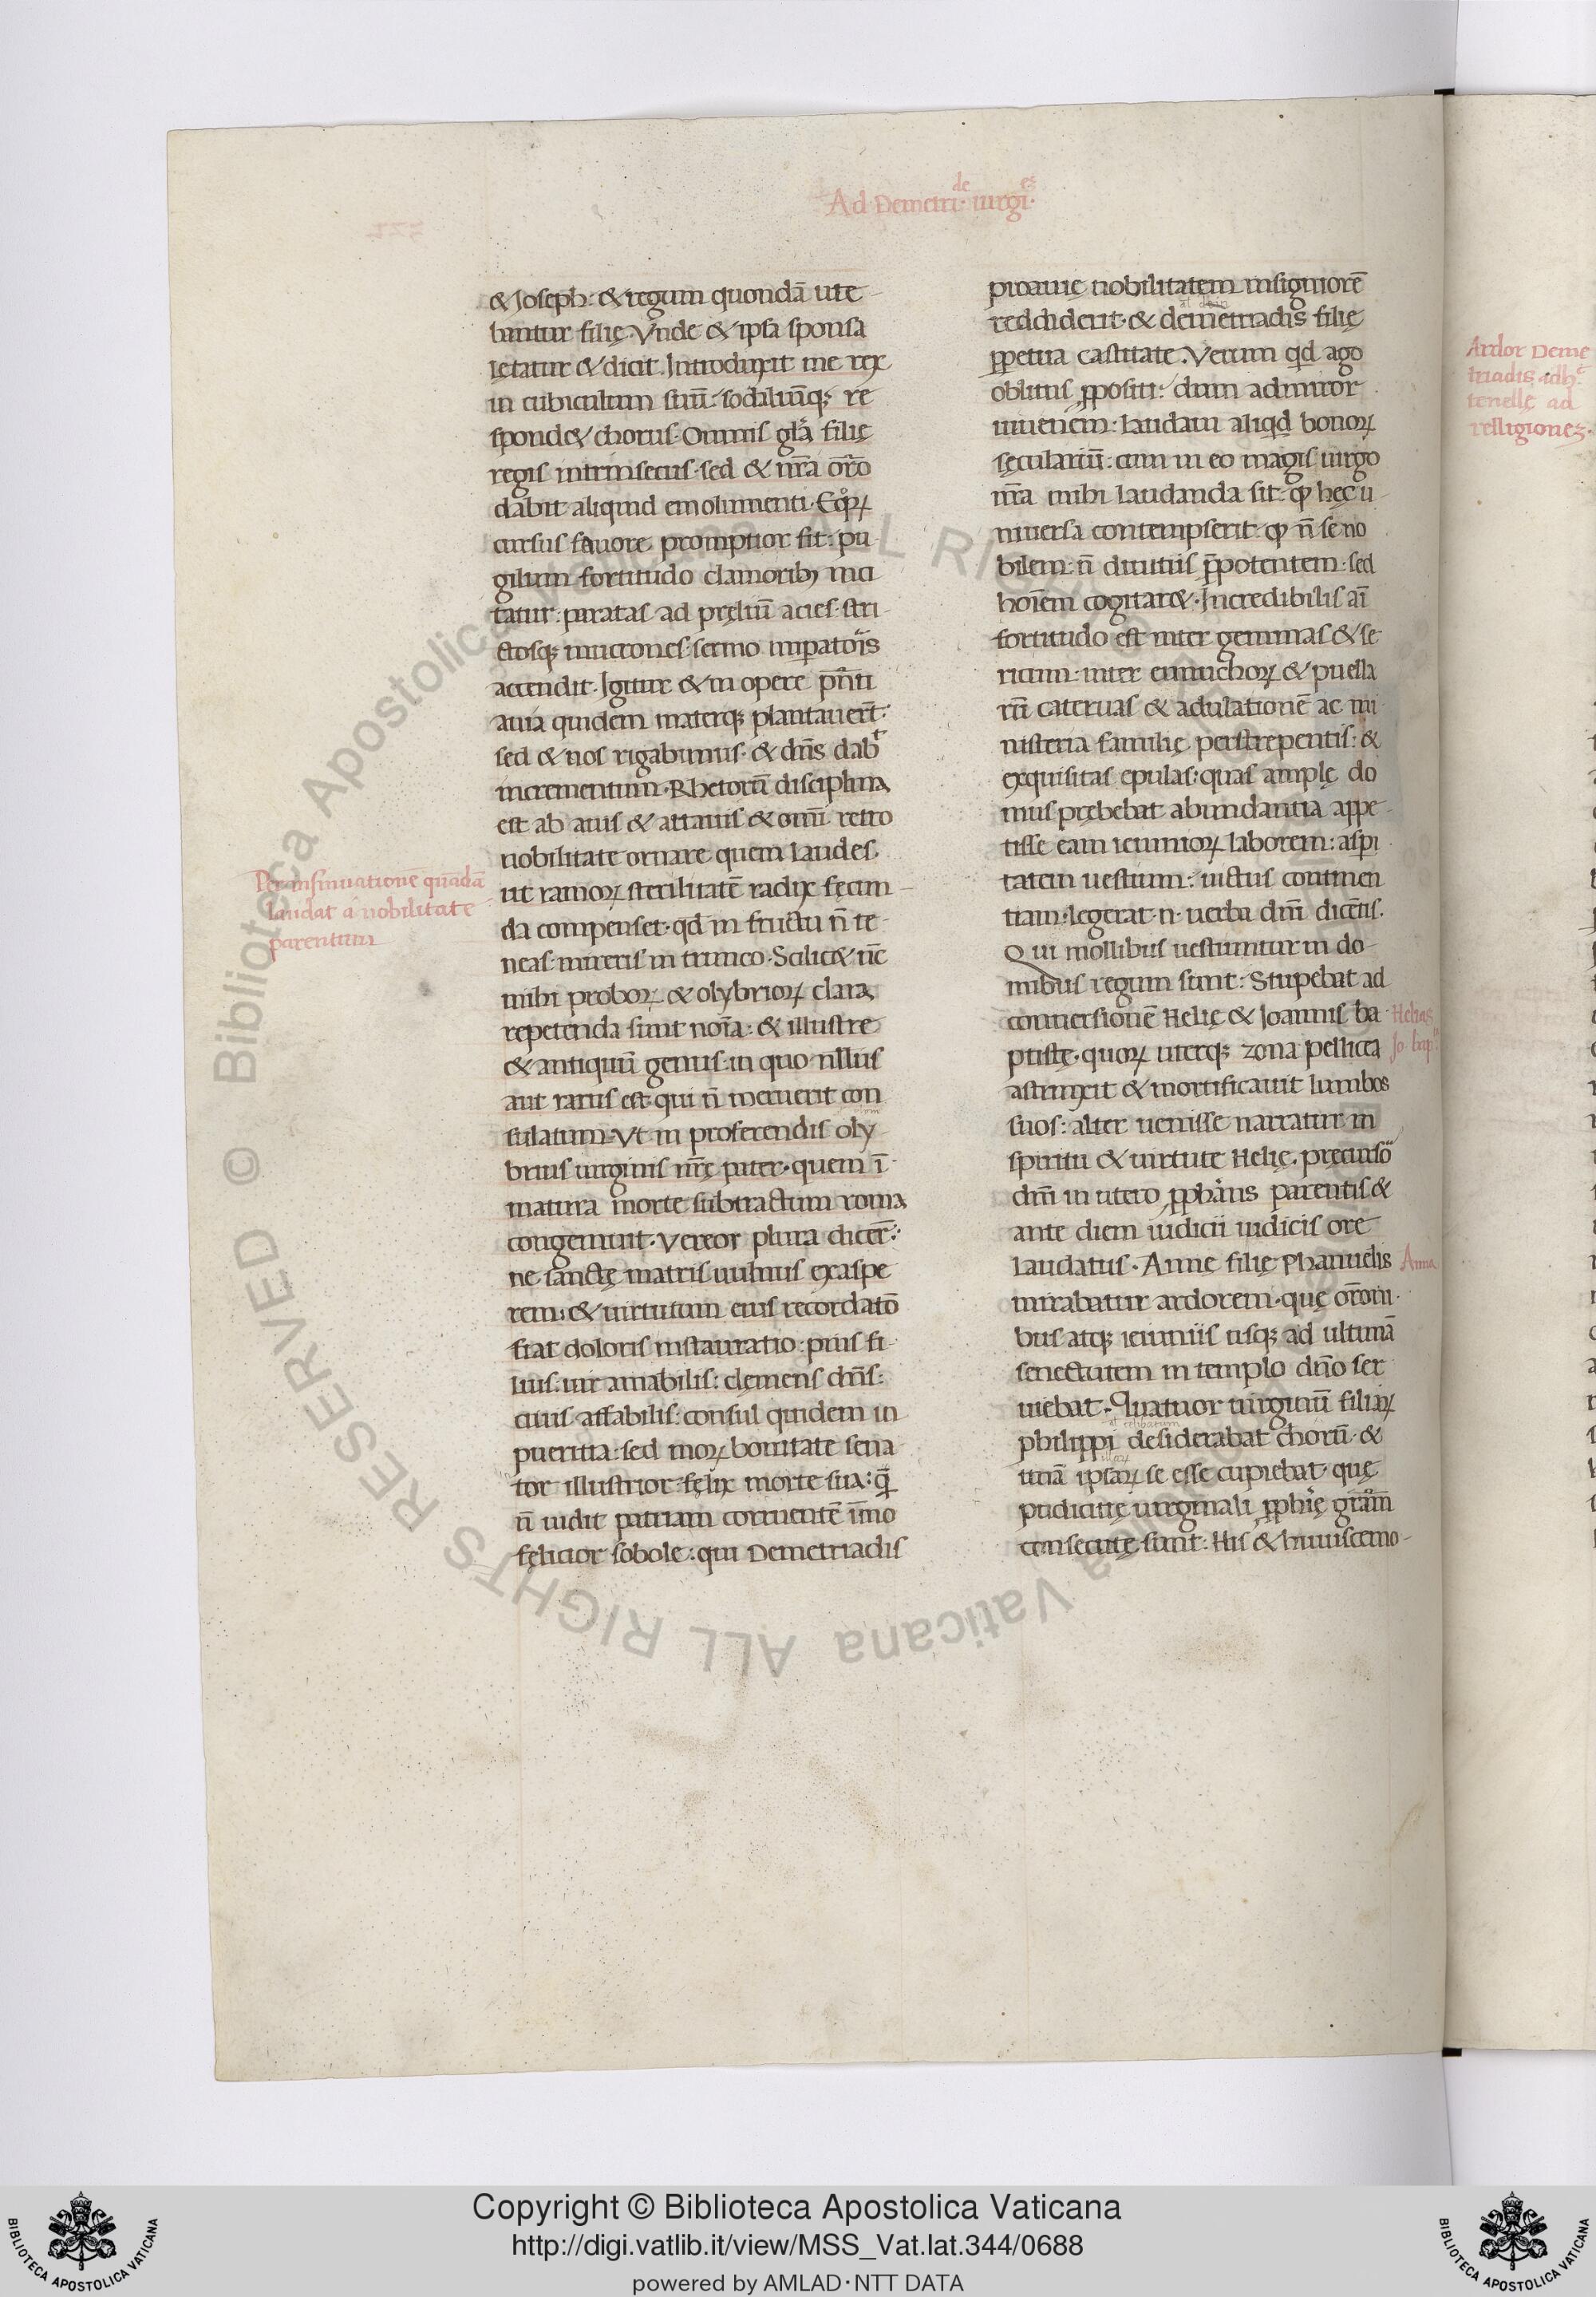 Ad Demetri·de uirgi·eȝ
& Joseph: & regum quondā ute
buntur filię. Vnde & ipsa sponsa
lętatur & dicit. Introduxit me rex
in cubiculum suū: sodaliūq; re
spond& chorus. Omnis gła filię
regis intrinsecus· sed & nr̄a or̄o
dabit aliquid emolumenti. Equoꝝ
cursus fauore promptior fit: pu
gilum fortitudo clamorib; inci
tatur: paratas ad pręliū acies· stri
ctosq; mucrones· sermo imꝑatoris
accendit. Igitur & in opere pn̄ti
auia quidem materq; plantauer̄t:
sed & nos rigabimus· & dn̄s dabᵗ
incrementum. Rhetorū disciplina
est ab auis & attauis & omi̅ retro
nobilitate ornare quem laudes
ut ramoꝝ sterilitatē radix fęcun
da compenset· qd in fructu n̄ te
neas· mireris in trunco. Scilic& nc̄
mihi proboꝝ & olybrioꝝ clara
repetenda sunt noīa: & illustre
& antiquū genus: in quo nullus
aut rarus est qui n̄ meruerit con
sulatum. Vt in proferendis oly
brius uirginis nr̄ę pater· quem ī
matura morte subtractum roma
congemuit. Vereor plura dicer̄:
ne sanctę matris uulnus exaspe
rem: & uirtutum eius recordatō
fiat doloris instauratio: pius fi
lius: uir amabilis: clęmens dn̄s:
ciuis affabilis: consul quidem in
pueritia: sed moꝝ bonitate sena
tor illustrior· fęlix morte sua: q̄
n̄ uidit patriam corruentē īmo
fęlicior sobole: qui Demetriadis
Per insinuationē quādā
laudat a nobilitate
parentum
proauię nobilitatem insigniorē
reddiderit· & demetriadis filię
ꝑpetua castitate. Verum qd ago
oblitus ꝓpositi: dum admiror
iuuenem: laudaui aliqd bonoꝝ
sęculariū: cum in eo magis uirgo
nr̄a mihi laudanda sit: ꝙ hęc u
niuersa contempserit· ꝙ n̄ se no
bilem: n̄ diuitiis p̄potentem: sed
hoīem cogitar&. Incredibilis aī
fortitudo est inter gemmas & se
ricum: inter eunuchoꝝ & puella
rū cateruas & adulationē ac mi
nisteria familię perstrepentis: &
exquisitas epulas: quas amplę do
mus prębebat abundantia appe
tisse eam ieiunioꝝ laborem: asꝑi
tatem uestium: uictus continen
tiam. legerat·n· uerba dn̄i dicētis.
Qui mollibus uestiuntur in do
mibus regum sunt: Stupebat ad
conuersionē Helię & Joannis ba
ptistę· quoꝝ uterq; zona pellicea
astrinxit & mortificauit lumbos
suos: alter uenisse narratur in
spiritu & uirtute Helię. pręcurso
dn̄i in utero ꝓphans parentis &
ante diem iudicii iudicis ore
laudatus. Annę filię Phanuelis
mirabatur ardorem· quę or̄oni
bus atq; ieiuniis usq; ad ultimā
senectutem in templo dn̄o ser
uiebat. Quatuor uirginū filiaꝝ
philippi desiderabat chorū· &
unā ipsaꝝ se esse cupiebat· quę
pudicitię uirginali ꝓphię gr̄am
consecutę sunt: His & huiuscemo
Helias
Jo. bap.
Anna
Ardor Deme
triadis adh᷒c
tenellę ad
relligioneȝ.
Copyright © Biblioteca Apostolica Vaticana
http://digi.vatlib.it/view/MSS_Vat.lat.344/0688
powered by AMLAD·NTT DATA
BIBLIOTECA APOSTOLICA VATICANA
BIBLIOTECA APOSTOLICA VATICANA
© Biblioteca Apostolica Vaticana ALL RIGHTS RESERVED